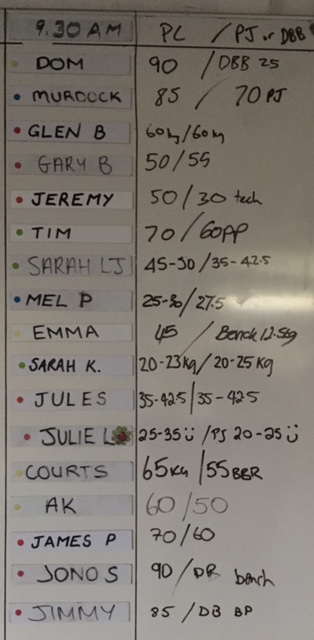 9.30 AM PC / PJ or DBB
DOM 90 / DBB 25
MURDOCK 85 / 70 PJ
GLEN B 60kg/60kg
GARY B 50/55
JEREMY 50/30 tech
TIM 70/60PP
SARAH LJ 45-50/35-42.5
MEL P 25-30/27.5
EMMA 45 / Bench 12.5kg
SARAH K. 20-23kg/20-25kg
JULES 35-42.5/35-42.5
JULIE L 25-35 ü /PJ 20-25 ü
COURTS 65kg/55BBR
AK 60/50
JAMES P 70/60
JONO S 90/DB bench
JIMMY 85 / DB BP